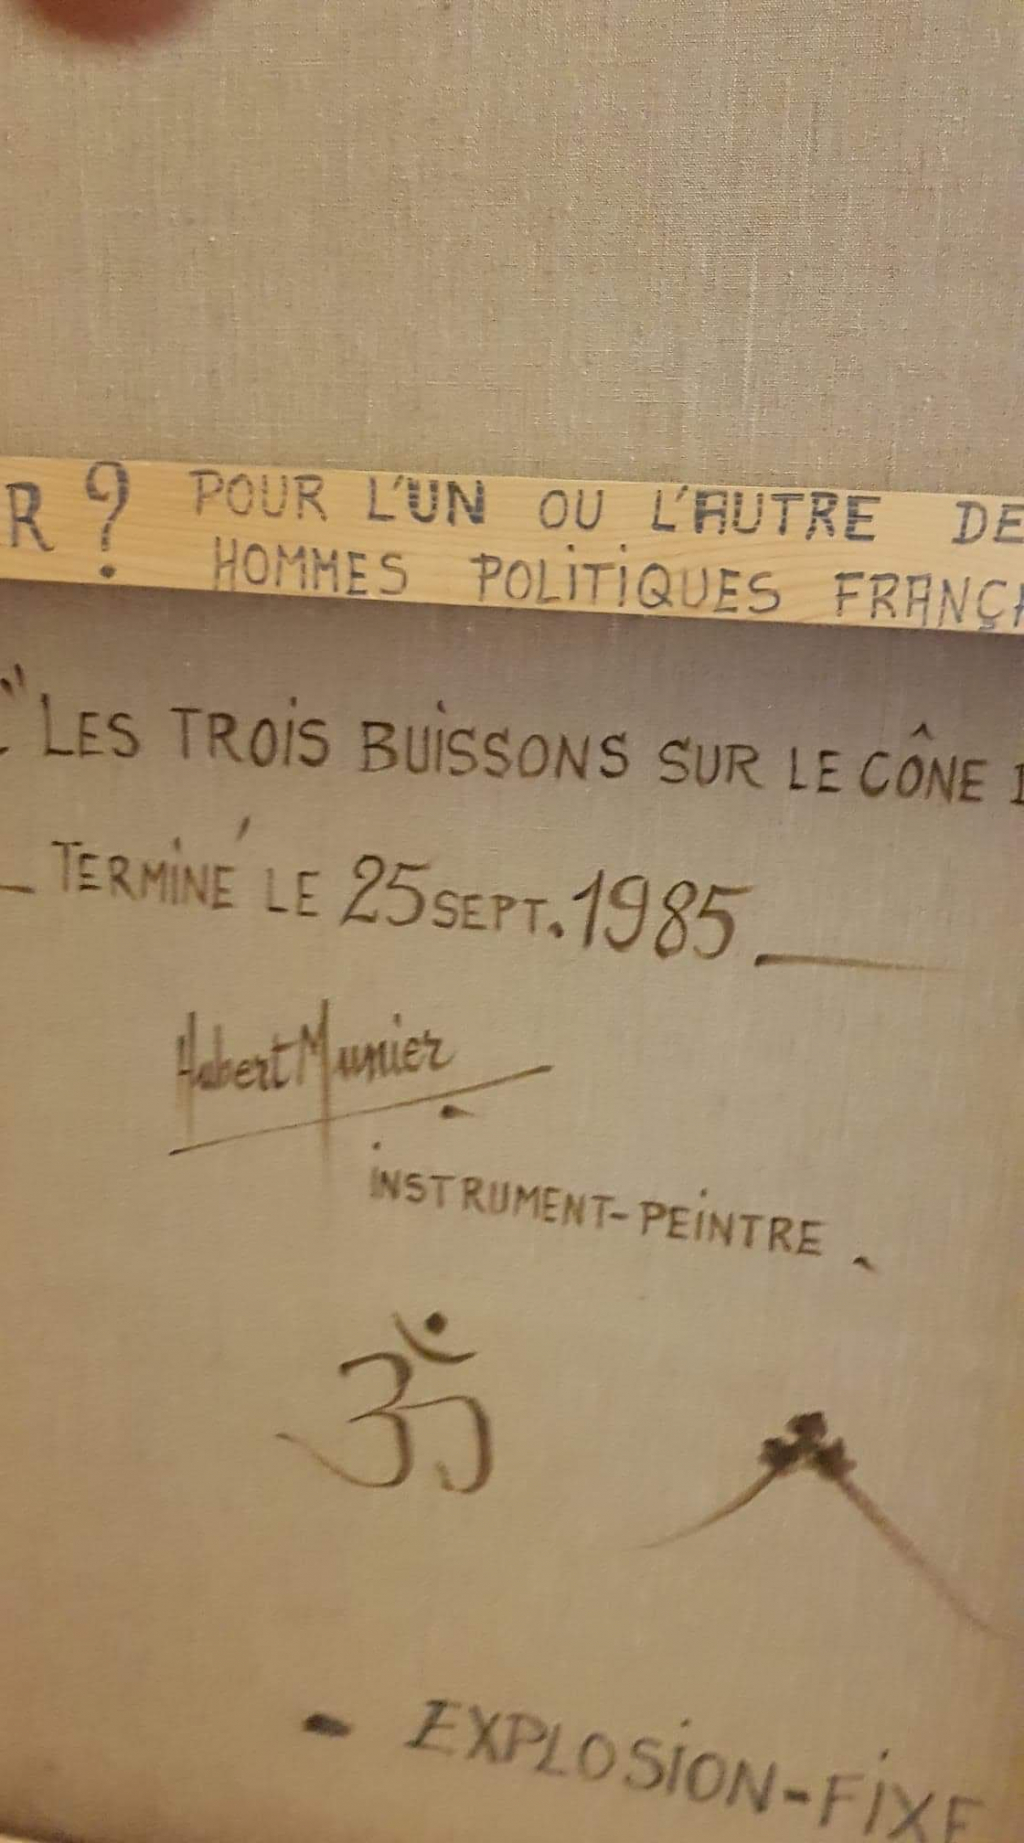 R ? POUR L'UN OU L'AUTRE DE
HOMMES POLITIQUES FRANÇA
"LES TROIS BUISSONS SUR LE CÔNE
TERMINÉ LE 25 SEPT. 1985
Hubert Munier
INSTRUMENT-PEINTRE.
ॐ
- EXPLOSION-FIXE